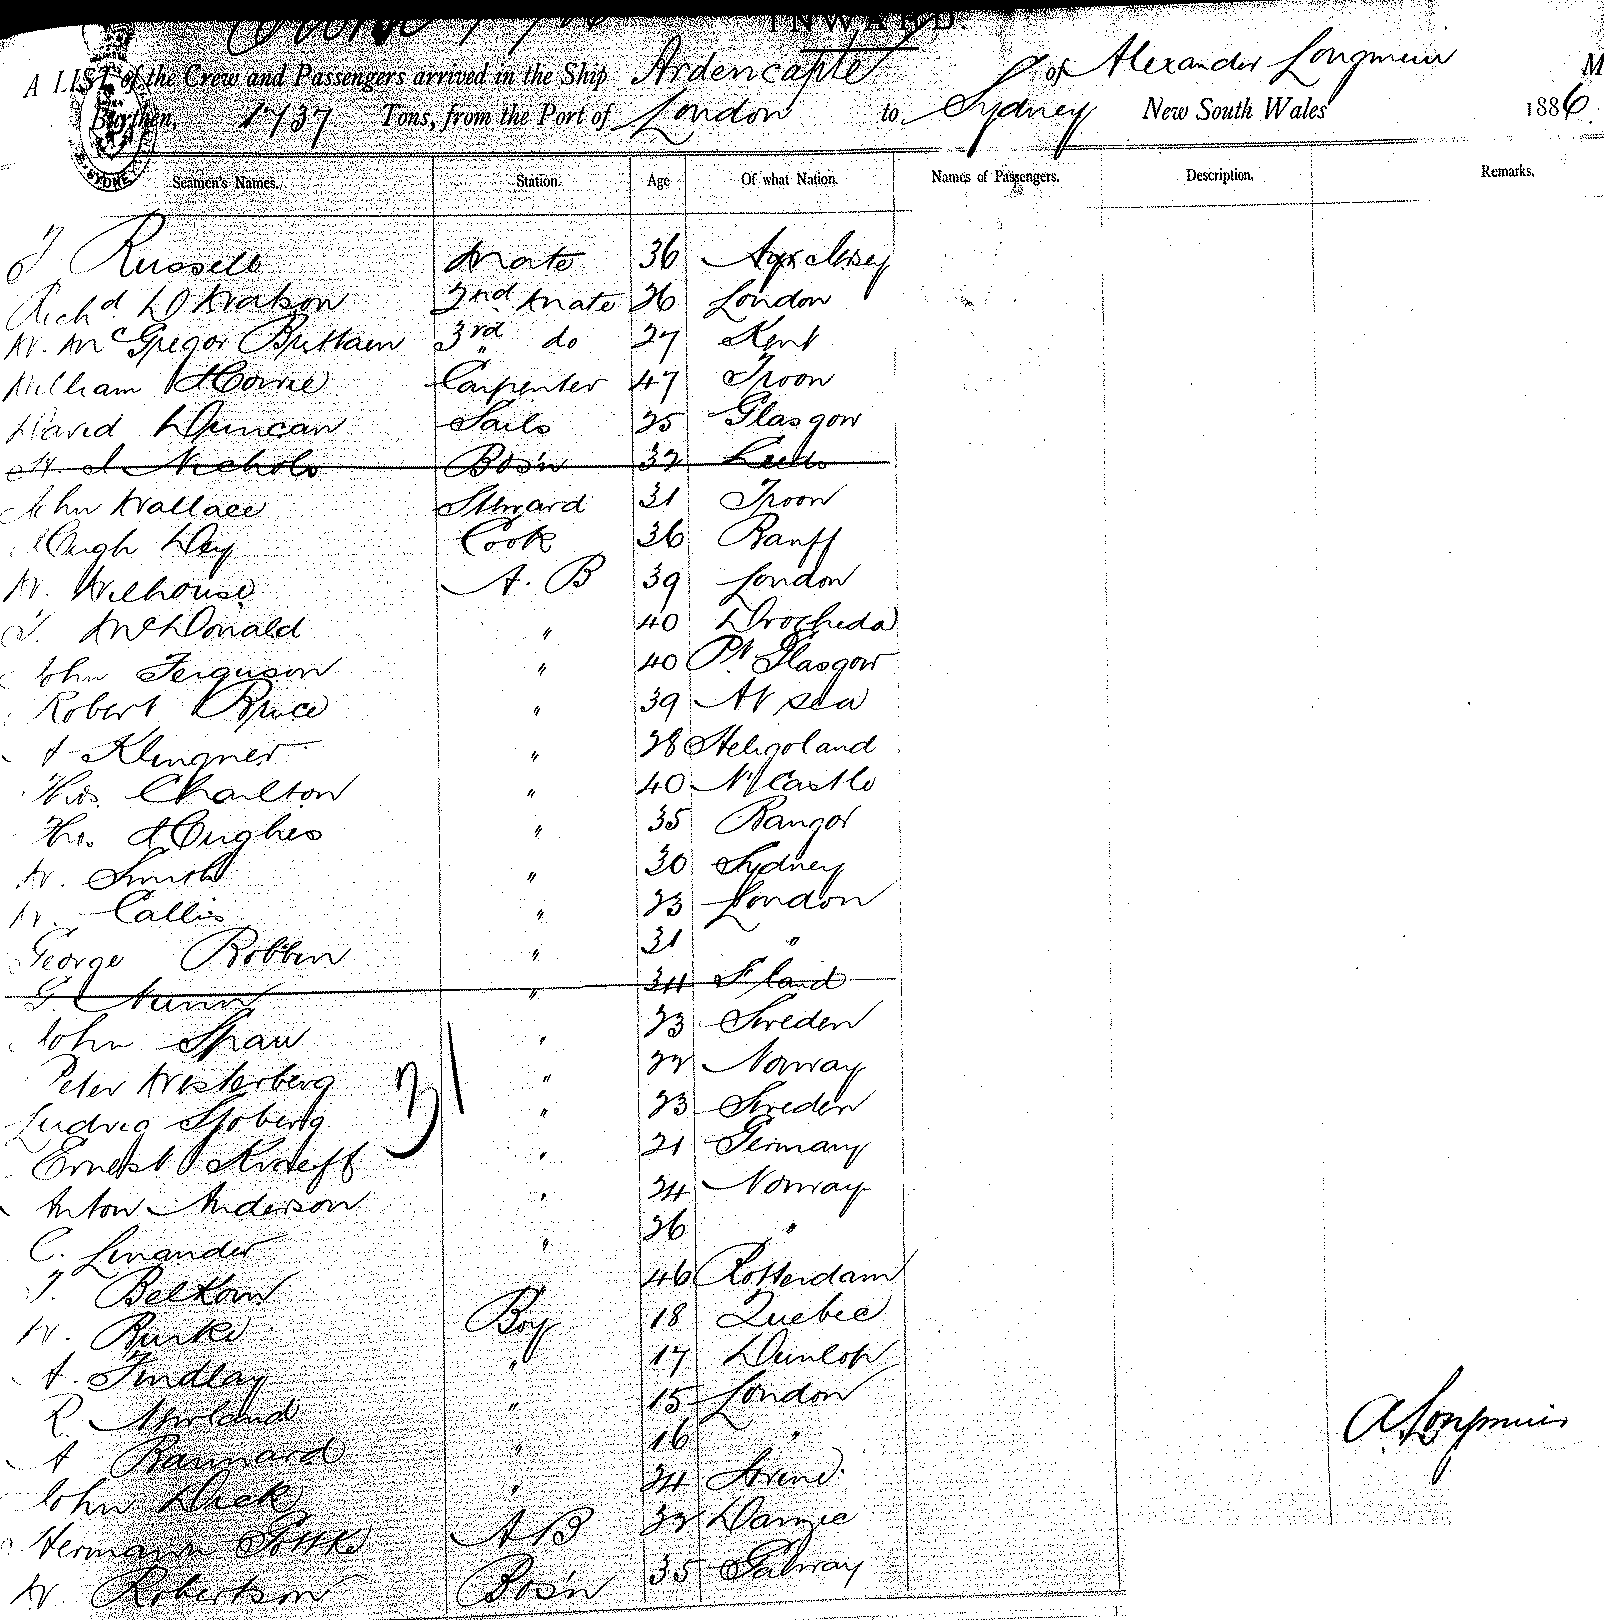 INWARD.
A LIST of the Crew and Passengers arrived in the Ship Ardencaple of Alexander Longmuir M
Burthen, 1737 Tons, from the Port of London to Sydney New South Wales 1886.
SYDNEY
Seamen's Names. Station. Age Of what Nation. Names of Passengers. Description. Remarks.
J Russell Mate 36
Richd Watson 2nd Mate 26 London
W. McGregor Brittain 3rd do 27 Kent
William Howie Carpenter 47 Troon
David Duncan Sails 25 Glasgow
H. J Nichols Bosn 32 Leeds
John Wallace Steward 31 Troon
Hugh Day Cook 36 Banff
W. Welhouse A. B 39 London
J. McDonald " 40 Drogheda
John Ferguson " 40 Pt Glasgow
Robert Bruce " 39 At sea
A Klingner " 28 Heligoland
Thos. Charlton " 40 N Castle
Thos. Hughes " 35 Bangor
W. Smith " 30 Sydney
W. Callis " 23 London
George Robben " 31 "
G. Nunn " 34
John Shaw " 23 Sweden
Peter Westerberg " 22 Norway
Ludvig Sjoberg " 23 Sweden
Ernest Kraeft " 21 Germany
Anton Anderson " 24 Norway
C. Linander " 26 "
J. 46 Rotterdam
W. Burke Boy 18 Quebec
A. Findlay " 17 Dunlop
R. " 15 London
A Bannard " 16 "
John Dick " 24
Hermann A B 32
W. Robertson Bosn 35 Galway
31
A. Longmuir